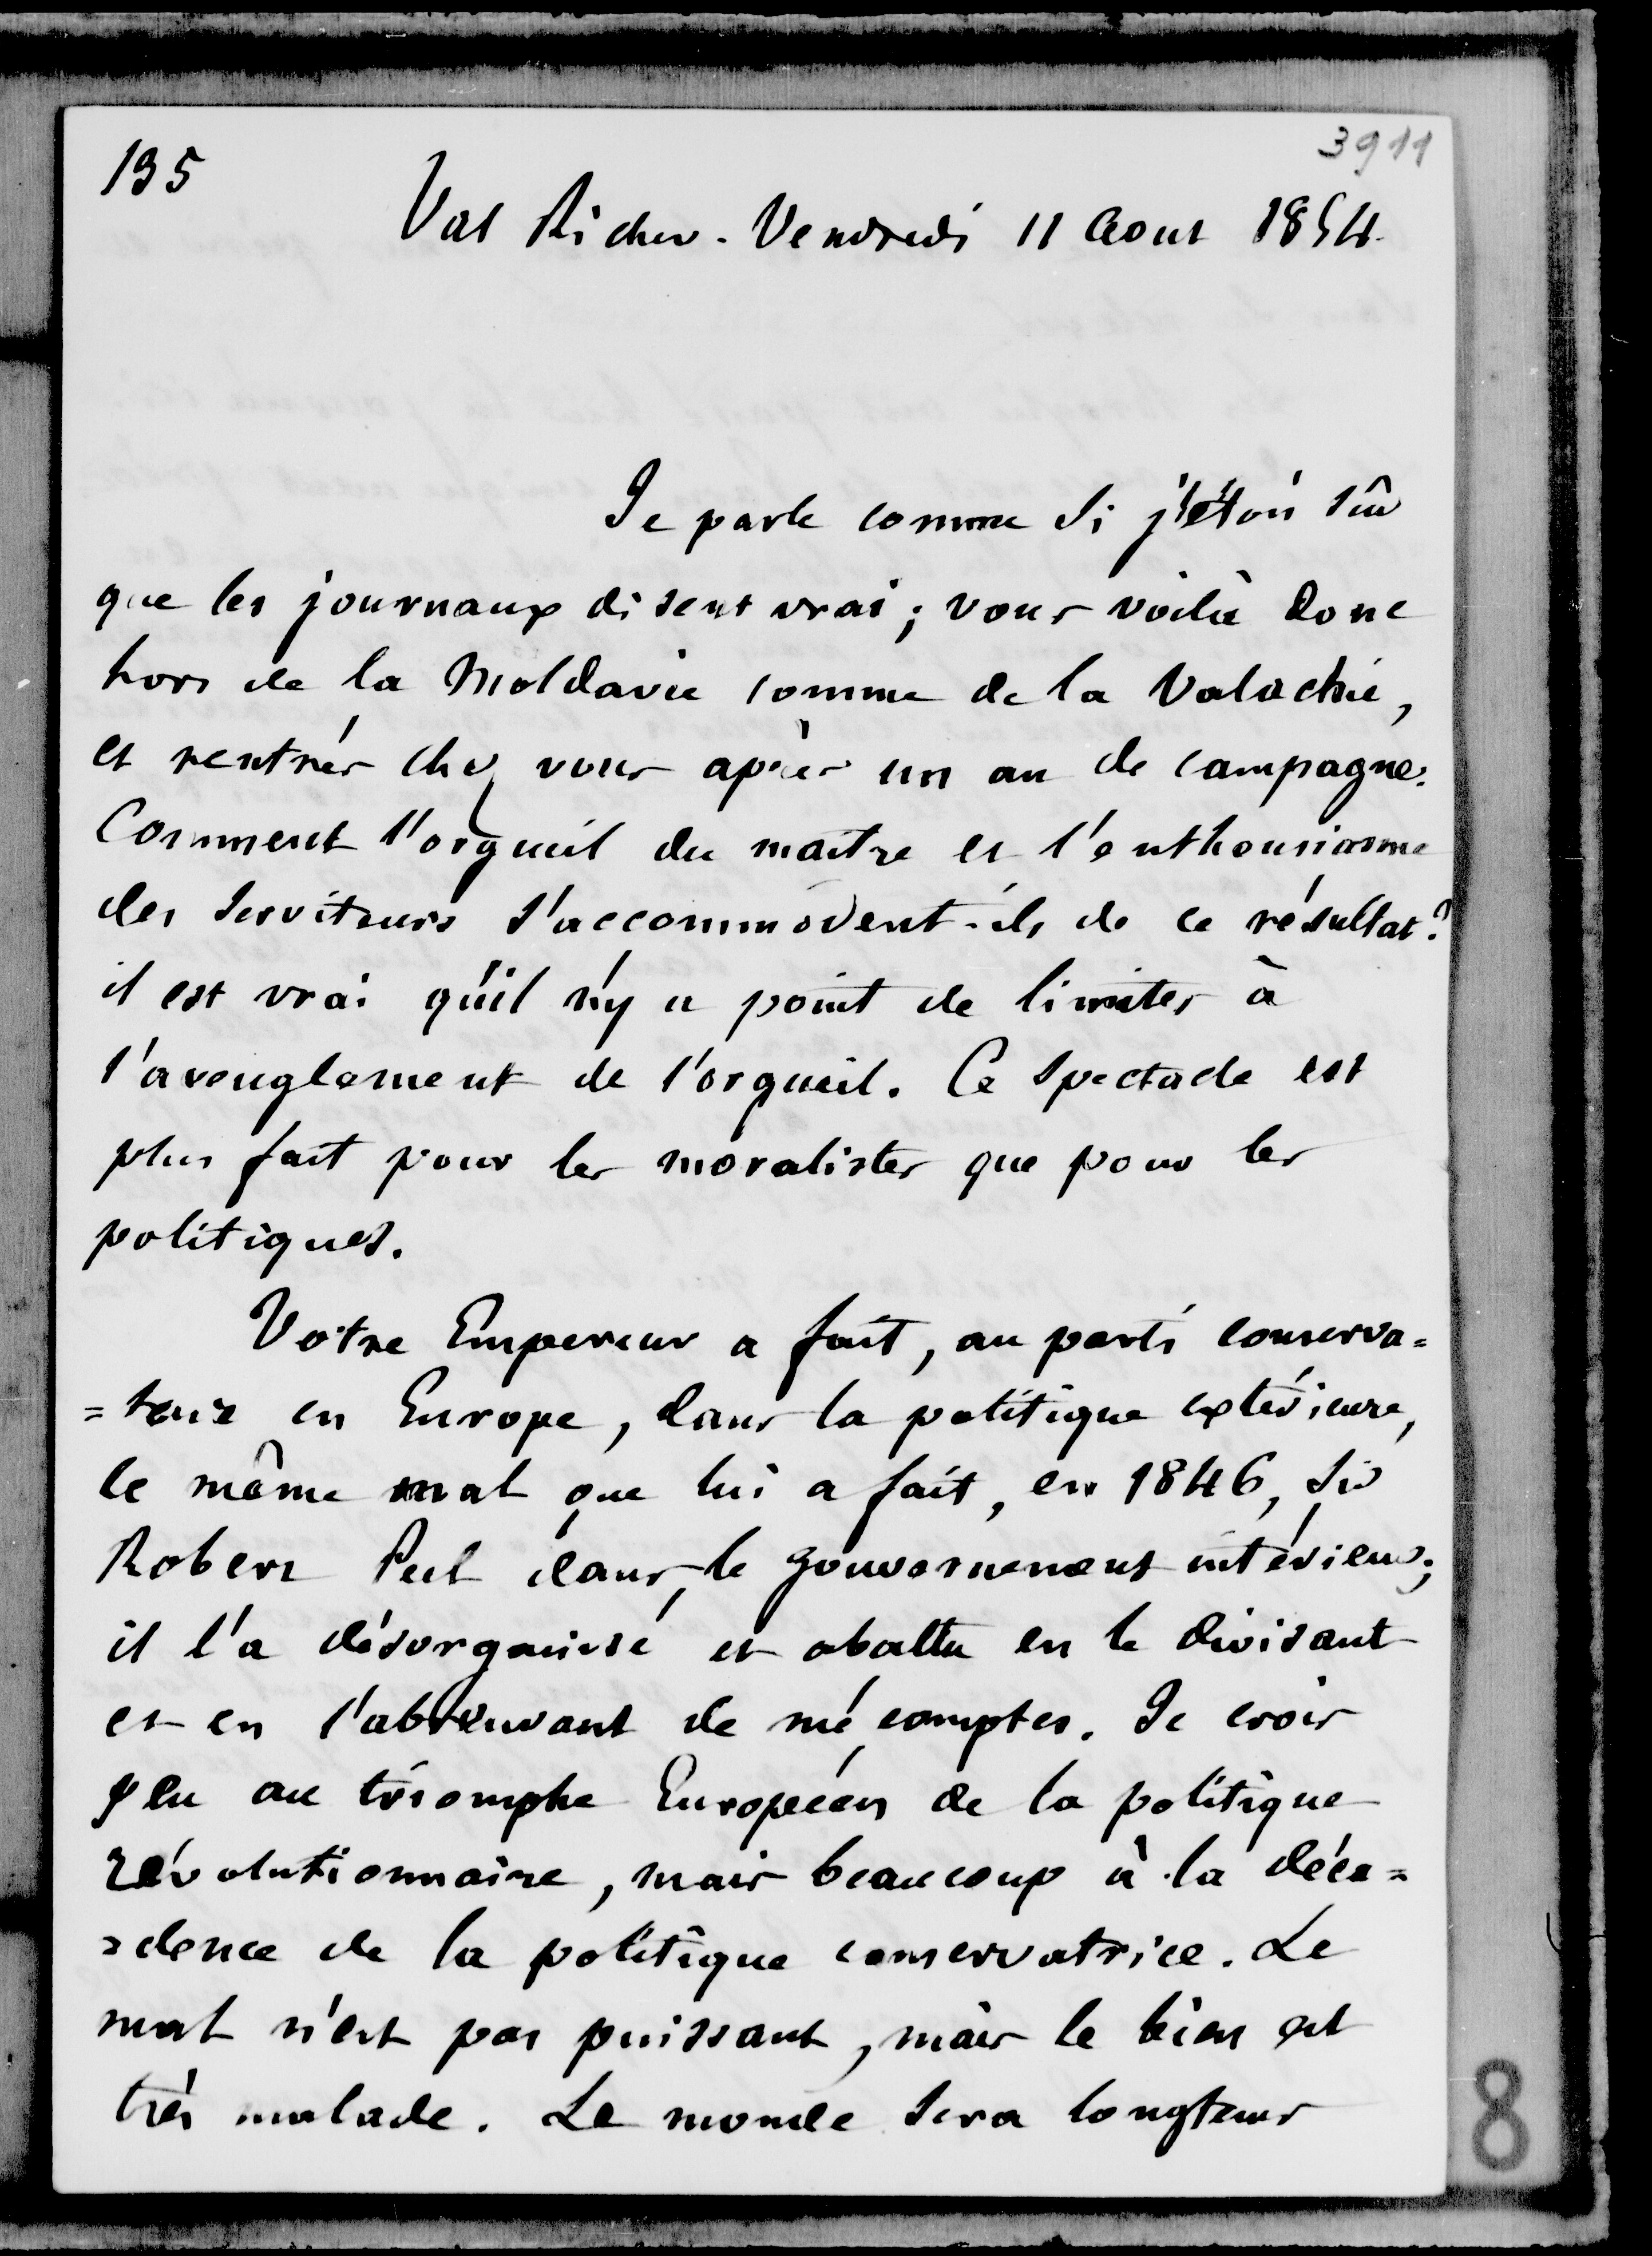 3911
135
Val Richer. Vendredi 11 Aout 1854.
Je parle comme si j'étois sûr
que les journaux disent vrai ; vous voilà donc
hors de la Moldavie comme de la Valachie,
et rentrés chez vous après un an de campagne.
Comment l'orgueil du maitre et l'enthousiasme
des serviteurs s'accommodent-ils de ce résultat ?
il est vrai qu'il n'y a point de limites à
l'aveuglement de l'orgueil. Ce spectacle est
plus fait pour les moralistes que pour les
politiques.
Votre Empereur a fait, au parti conserva=
=teur en Europe, dans la politique extérieure,
le même mal que lui a fait, en 1846, Sir
Robert Peel dans le gouvernement intérieur ;
il l'a désorganisé et abattu en le divisant
et en l'abreuvant de mécomptes. Je crois
peu au triomphe Européen de la politique
révolutionnaire, mais beaucoup à la déca=
=dence de la politique conservatrice. Le
mal n'est pas puissant, mais le bien est
très malade. Le monde sera longtems
8